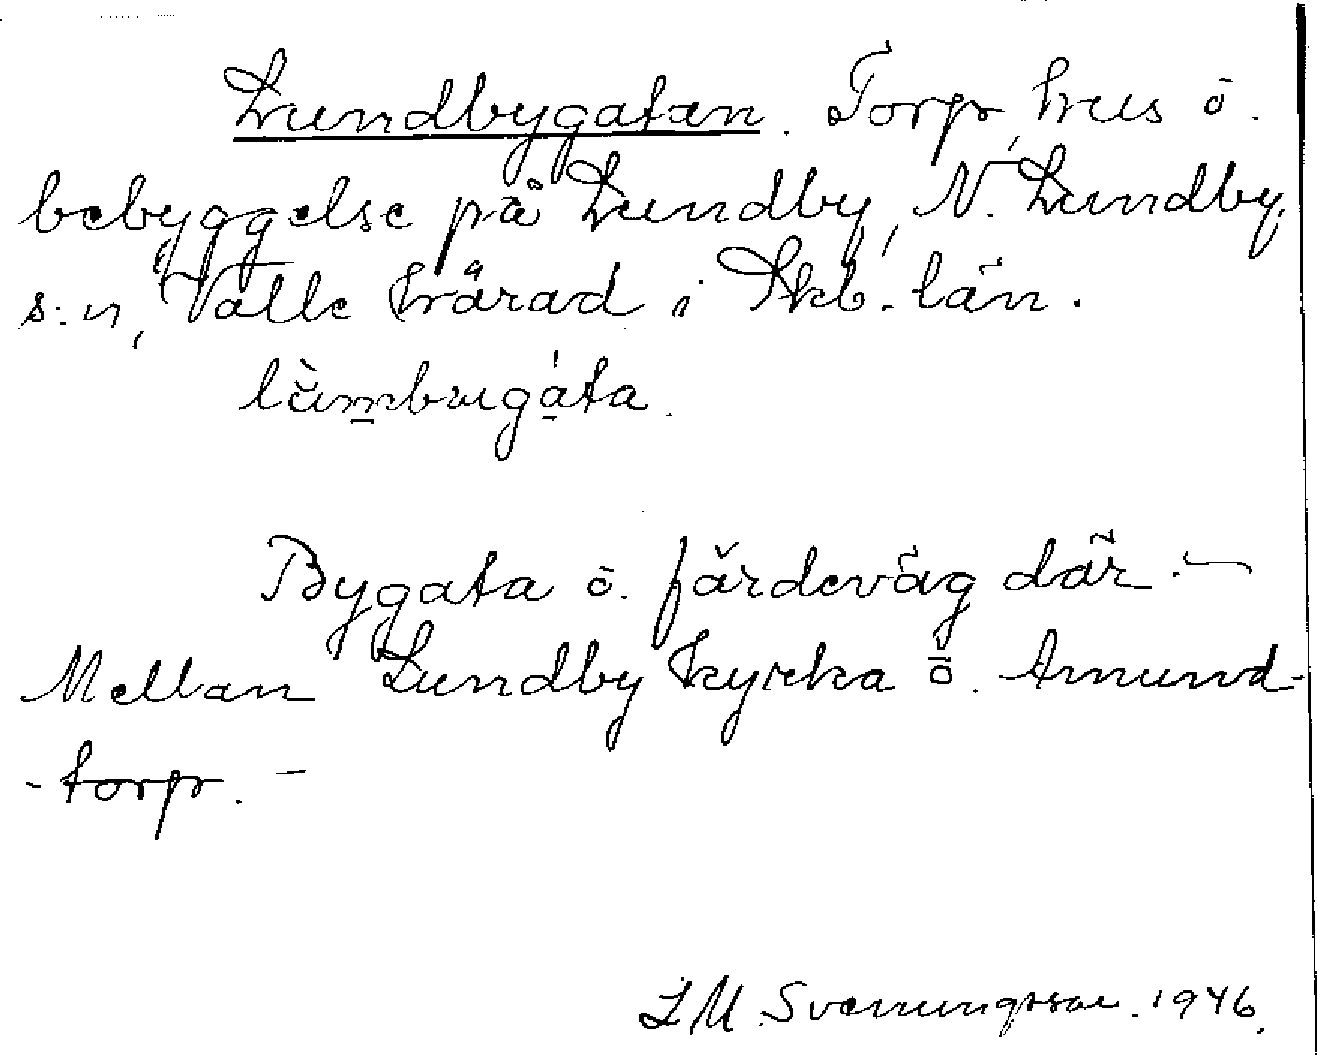 Lundbygatan. Torp, hus ö.
bebyggelse på Lundby, N. Lundby
s:n, Valle härad i Skb. län.
Bygata ö. färdeväg där. —
Mellan Lundby kyrka ö. Amund-
-torp. —
L M Svenungsson. 1946.